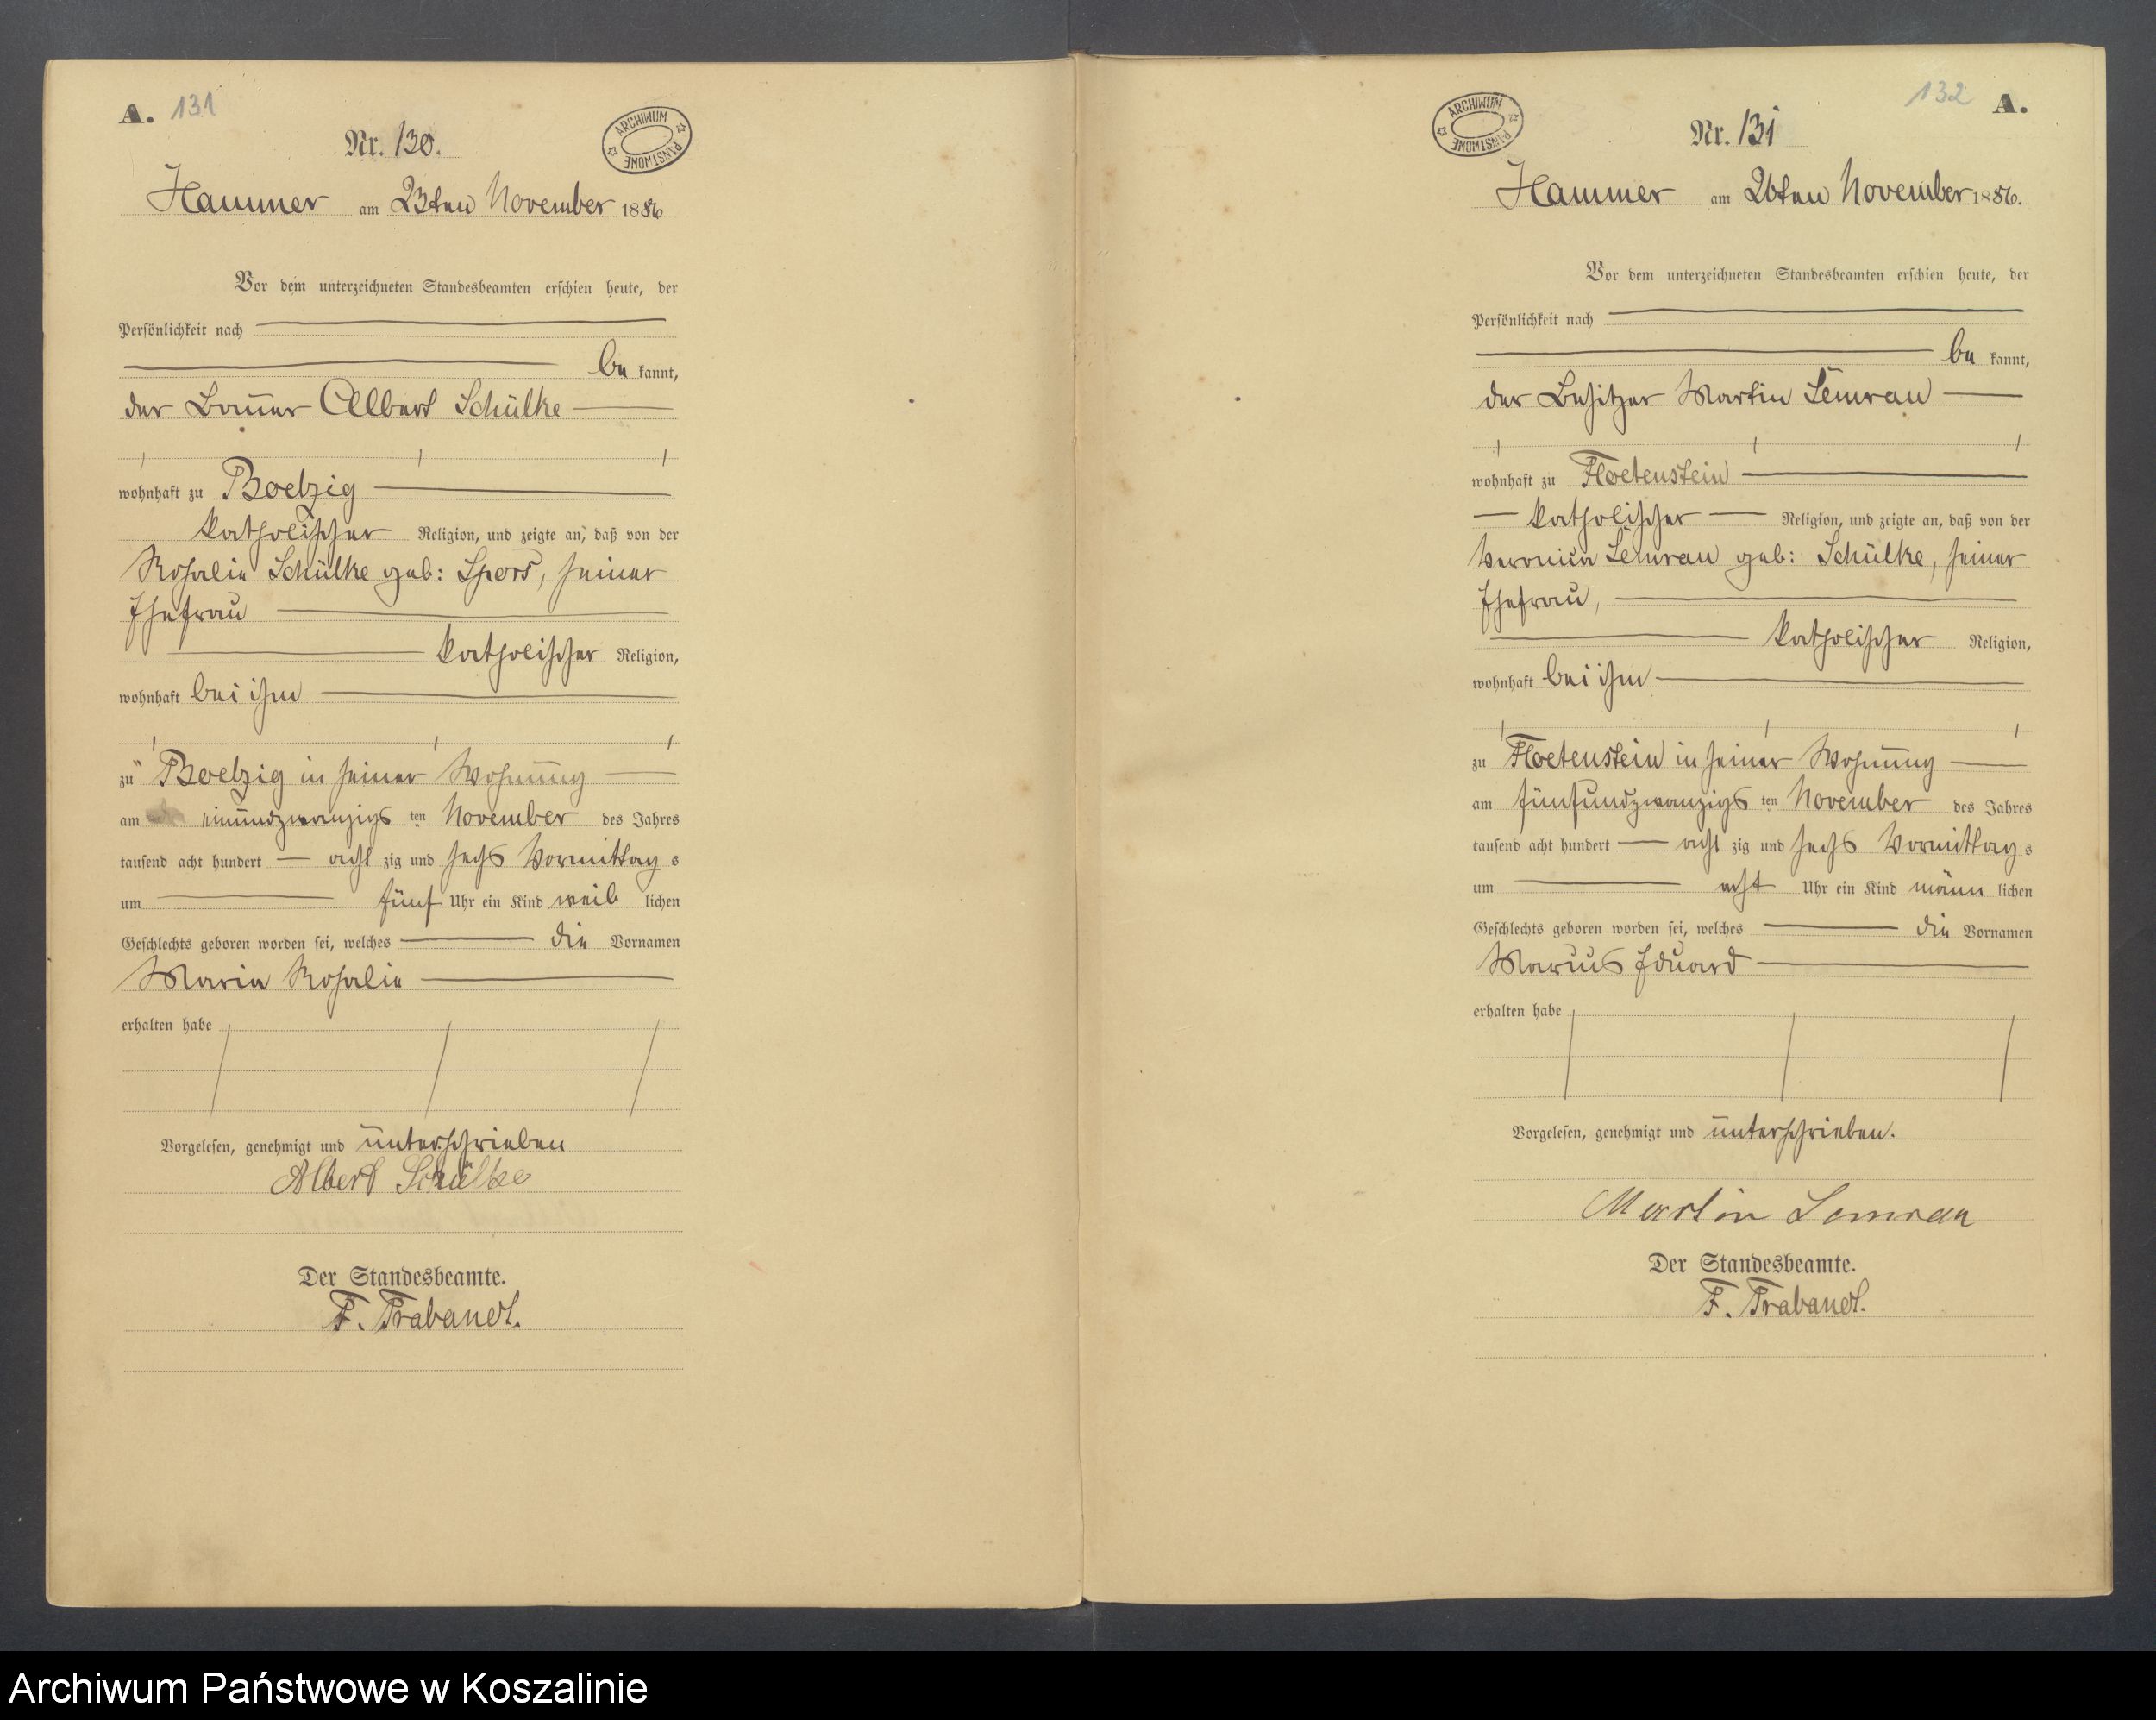 A. 131
Nr. 130.
ARCHIWUM PAŃSTWOWE
Hammer am 23ten November 1886
Vor dem unterzeichneten Standesbeamten erschien heute, der
Persönlichkeit nach
be kannt,
der Bauer Albert Schülke
wohnhaft zu Boelzig
katholischer Religion, und zeigte an, daß von der
Rosalie Schülke geb: Spors, seiner
Ehefrau
katholischer Religion,
wohnhaft bei ihm
zu Boelzig in seiner Wohnung
am einundzwanzigs ten November des Jahres
tausend acht hundert acht zig und sechs Vormittag s
um fünf Uhr ein Kind weib lichen
Geschlechts geboren worden sei, welches die Vornamen
Maria Rosalie
erhalten habe
Vorgelesen, genehmigt und unterschrieben
Albert Schülke
Der Standesbeamte.
F. Trabandt.
132 A.
Nr. 131
ARCHIWUM PAŃSTWOWE
Hammer am 26ten November 1886.
Vor dem unterzeichneten Standesbeamten erschien heute, der
Persönlichkeit nach
be kannt,
der Besitzer Martin Lemrau
wohnhaft zu Floetenstein
katholischer Religion, und zeigte an, daß von der
Veronica Lemrau geb: Schülke, seiner
Ehefrau,
katholischer Religion,
wohnhaft bei ihm
zu Floetenstein in seiner Wohnung
am fünfundzwanzigs ten November des Jahres
tausend acht hundert acht zig und sechs Vormittag s
um acht Uhr ein Kind männ lichen
Geschlechts geboren worden sei, welches die Vornamen
Marcus Eduard
erhalten habe
Vorgelesen, genehmigt und unterschrieben.
Martin Lemrau
Der Standesbeamte.
F. Trabandt.
Archiwum Państwowe w Koszalinie